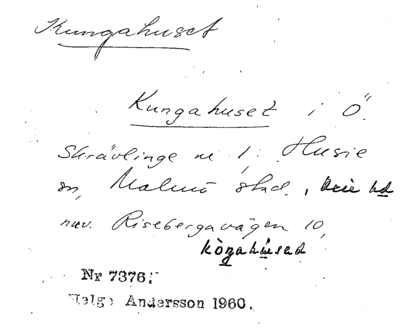 Kungahuset
Kungahuset i Ö.
Skrävlinge nr 1, Husie
sn, Malmö stad, Oxie hd
nuv. Risebergavägen 10,
kògahùsad
Nr 7376.
Helge Andersson 1960.